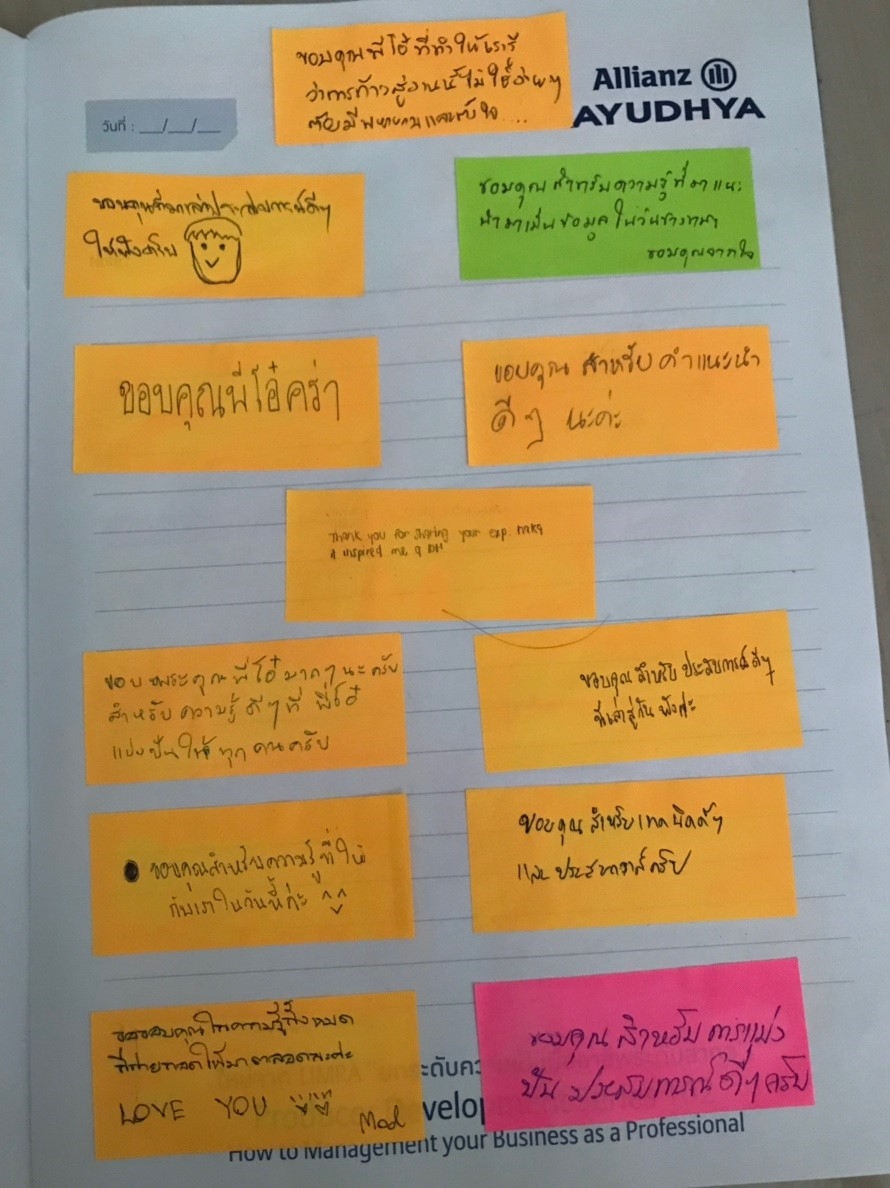 ขอบคุณพี่โอ๋ ที่ทำให้เรารู้
ว่าการก้าวสู่งานนี้ไม่ใช่ง่ายๆ
ต้องมีพยายามและตั้งใจ....
Allianz
AYUDHYA
วันที่ : __/__/__
ขอบคุณที่มาเล่าประสบการณ์ดีๆ
ให้ฟังครับ
ขอบคุณ สำหรับความรู้ที่มาแนะ
นำมาเป็นข้อมูล ในวันข้างหน้า
ขอบคุณจากใจ
ขอบคุณพี่โอ๋คร่า
ขอบคุณ สำหรับ คำแนะนำ
ดี ๆ นะค่ะ
Thank you for sharing your exp. make
inspired me
ขอบพระคุณ พี่โอ๋ มาก ๆ นะครับ
สำหรับ ความรู้ ดี ๆ ที่ พี่โอ๋
แบ่งปันให้ทุกคนครับ
ขอบคุณ สำหรับ ประสบการณ์ ดีๆ
ที่เล่าสู่กันฟังค่ะ
ขอบคุณสำหรับความรู้ที่ให้
กับเราในวันนี้ค่ะ ^^
ขอบคุณ สำหรับเทคนิคดีๆ
และ ประสบการณ์ครับ
ขอขอบคุณในความรู้ทั้งหมด
ที่ถ่ายทอดให้มาตลอดนะค่ะ
LOVE YOU
Mod
ขอบคุณ สำหรับ การแบ่ง
ปัน ประสบการณ์ ดีๆ ครับ
velop
How to Management your Business as a Professional